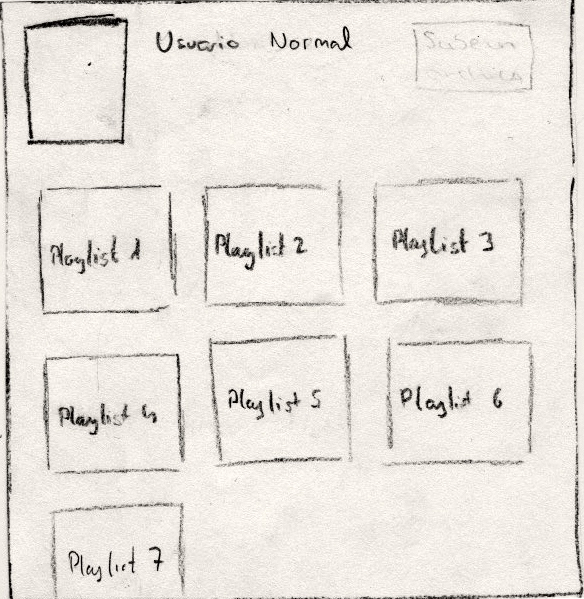 Usuario Normal
Playlist 1
Playlist 2
Playlist 3
Playlist 4
Playlist 5
Playlist 6
Playlist 7